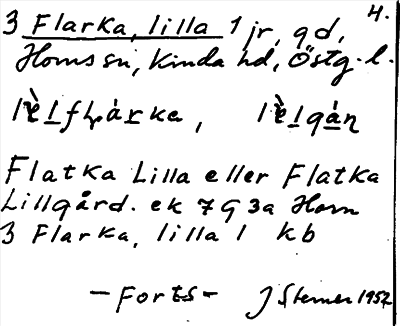 3 Flarka, lilla 1 jr, gd, 4.
Horns sn, Kinda hd, Östg. l.
Flatka Lilla eller Flatka
Lillgård. ek 7G 3a Horn
3 Flarka, lilla 1 kb
— Forts — J Sterner 1952